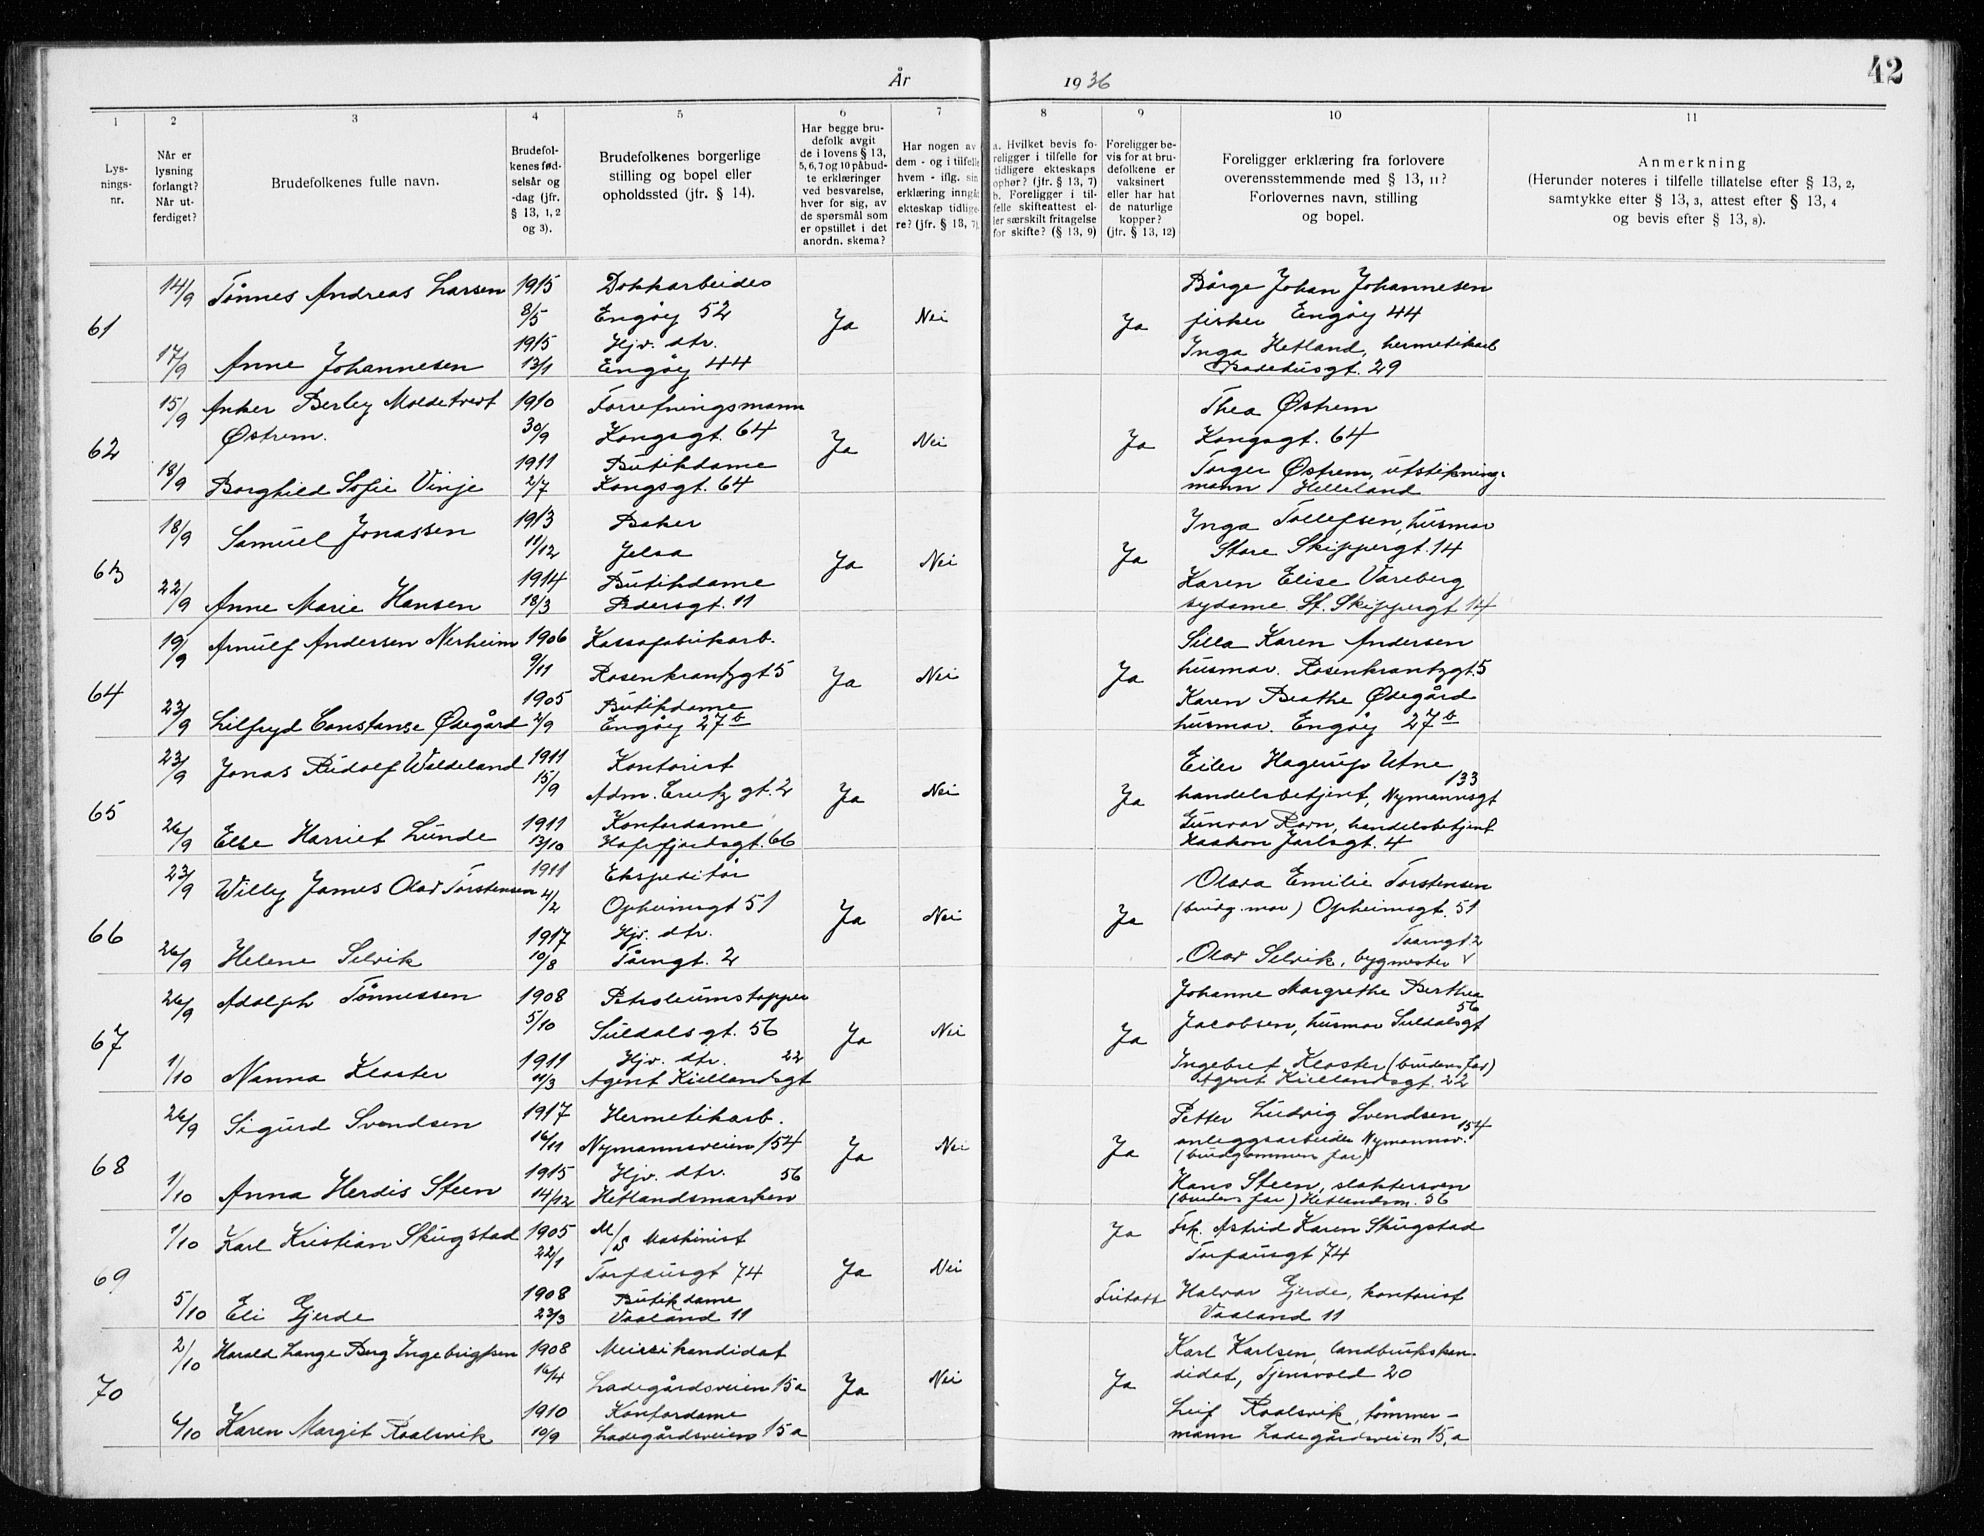 År 1936
42
1 2 3 4 5 6 7 8 9 10 11
Lys-
nings-
nr.
Når er
lysning
forlangt?
Når ut-
ferdiget?
Brudefolkenes fulle navn.
Brudefol-
kenes fød-
selsår og
-dag (jfr.
§ 13, 1, 2
og 3).
Brudefolkenes borgerlige
stilling og bopel eller
opholdssted (jfr. § 14).
Har begge bru-
defolk avgit
de i lovens § 13,
5, 6, 7 og 10 påbud-
te erklæringer
ved besvarelse,
hver for sig, av
de spørsmål som
er opstillet i det
anordn. skema?
Har nogen av
dem - og i tilfelle
hvem - iflg. sin
erklæring inngått
ekteskap tidlige-
re? (jfr. § 13, 7).
a. Hvilket bevis fo-
religger i tilfelle for
tidligere ekteskaps
ophør? (jfr. § 13, 7)
b. Foreligger i til-
felle skifteattest el-
ler særskilt fritagelse
for skifte? (§ 13, 9)
Foreligger be-
vis for at bru-
defolkene er
vaksinert
eller har hat
de naturlige
kopper?
(jfr. § 13, 12)
Foreligger erklæring fra forlovere
overensstemmende med § 13, 11?
Forlovernes navn, stilling
og bopel.
Anmerkning
(Herunder noteres i tilfelle tillatelse efter § 13, 2,
samtykke efter § 13, 3, attest efter § 13, 4
og bevis efter § 13, 8).
61
14/9 Tønnes Andreas Larsen 1915 8/5 Dokkarbeider
Engøy 52
17/9 Anne Johannesen 1915 13/1 Hjv. dtr.
Engøy 44
Ja Nei Ja
Børge Johan Johannesen
fisker Engøy 44
Inga Hetland, hermetikarb
Badehusgt. 29
62
15/9 Anker Berley Moldetvedt
Østrem. 1910 30/9
Kongsgt. 64
18/9 Borghild Sofie Vinje 1911 2/7 Butikdame
Kongsgt. 64
Ja Nei Ja
Thea Østrem
Kongsgt. 64
Torger Østrem, utstiknings-
mann Helleland
63
18/9 Samuel Jonassen 1913 11/12 Baker
Jelsa
22/9 Anne Marie Hansen 1914 18/3 Butikdame
Pedersgt. 11
Ja Nei Ja
Inga Tollefsen, husmor
Store Skippergt. 14
Karen Elise Vareberg
sydame St. Skippergt 14
64
19/9 Arnulf Andersen Nerheim 1906 9/11 Kassafabrikarb.
Rosenkrantzgt 5
23/9 Lilfryd Constanse Ødegård 1905 2/9 Butikdame
Engøy 27b
Ja Nei Ja
Silla Karen Andersen
husmor. Rosenkrantzgt. 5
Karen Beathe Ødegård
husmor. Engøy 27b
65
23/9 Jonas Rudolf Waldeland 1911 15/9 Kontorist
Adm. Crutz gt. 2
26/9 Else Harriet Lunde 1911 13/10 Kontordame
Hafrsfjordsgt. 66
Ja Nei Ja
Eiler Hagerup Utne
133
handelsbetjent, Nymannsgt
Gunvor Ravn, handelsbetjent
Haakon Jarlsgt. 4
66
23/9 Willy James Olav Torstensen 1911 4/2 Ekspeditør
Opheimsgt 51
26/9 Helene Selvik 1917 10/8 Hjv. dtr.
Tårngt. 2
Ja Nei Ja
Olava Emilie Torstensen
(brudg. mor) Opheimsgt. 51
Taarngt 2
Olav Selvik, bygmester
67
26/9 Adolph Tønnessen 1908 5/10 Petroleumstapper
Suldalsgt. 56
1/10 Nanna Kloster 1911 11/3 Hjv. dtr. 22
Agent Kiellandsgt
Ja Nei Ja
Johanne Margrethe Berthea
56
Jacobsen, husmor Suldalsgt
Ingebret Kloster (brudens far)
Agent Kiellandsgt. 22
68
26/9 Sigurd Svendsen 1917 16/11 Hermetikarb.
Nymannsveien 154
1/10 Anna Herdis Steen 1915 14/12 Hjv. dtr. 56
Hetlandsmarken
Ja Nei Ja
Petter Ludvig Svendsen
154
anleggsarbeider Nymannsv.
(brudgommens far)
Hans Steen, slaktersven
(brudens far) Hetlandsm. 56
69
1/10 Karl Kristian Skugstad 1905 22/1 M/S Maskinist
Torfæusgt 74
5/10 Eli Gjerde 1908 23/3 Butikdame
Vaaland 11
Ja Nei Ja
Fritatt
Frk. Astrid Karen Skugstad
Torfæusgt 74
Halvor Gjerde, kontorist
Vaaland 11
70
2/10 Harald Lange Berg Ingebrigtsen 1908 16/4 Meierikandidat
Ladegårdsveien 15a
6/10 Karen Margit Roalsvik 1910 10/9 Kontordame
Ladegårdsveien 15a
Ja Nei Ja
Karl Karlsen, landbrukskan-
didat, Tjensvold 20
Leif Roalsvik, tømmer-
mann Ladegårdsveien 15, a